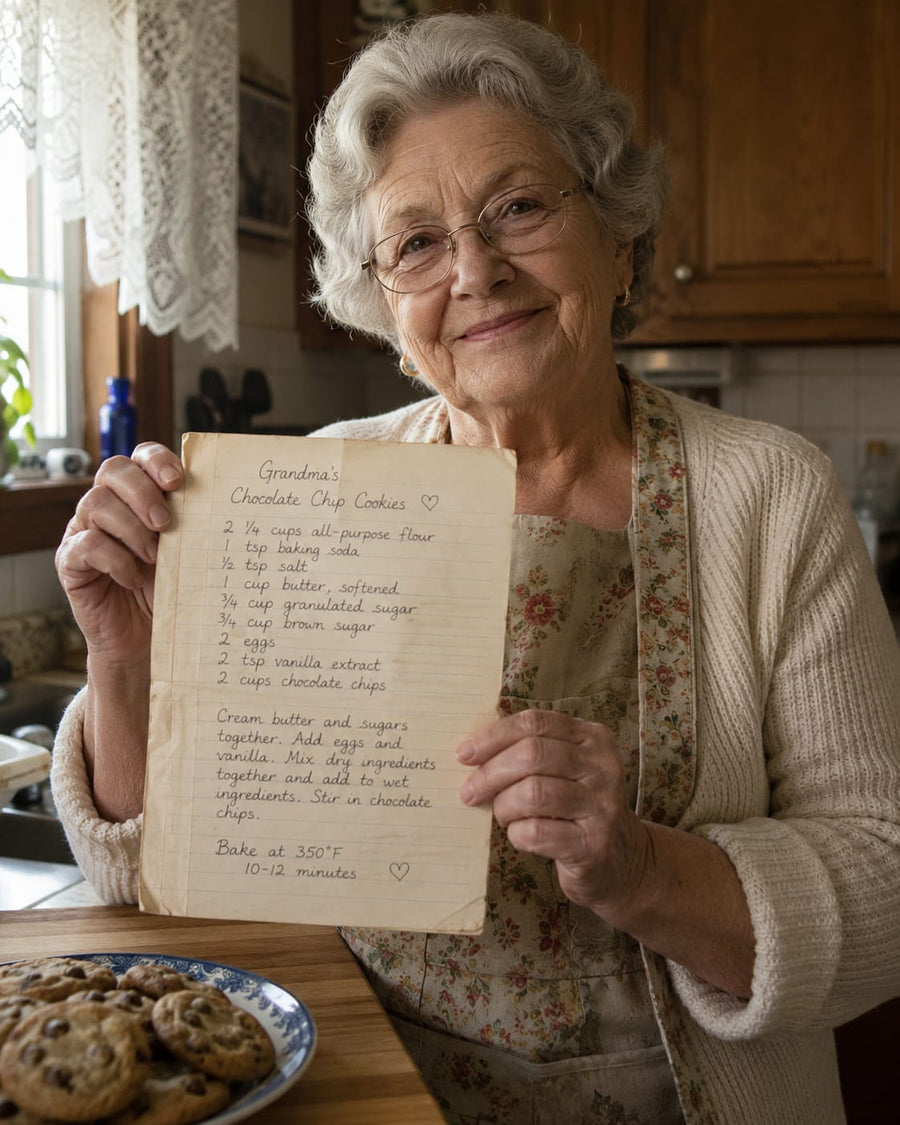 Grandma's
Chocolate Chip Cookies ♡
2 ¼ cups all-purpose flour
1 tsp baking soda
½ tsp salt
1 cup butter, softened
¾ cup granulated sugar
¾ cup brown sugar
2 eggs
2 tsp vanilla extract
2 cups chocolate chips
Cream butter and sugars
together. Add eggs and
vanilla. Mix dry ingredients
together and add to wet
ingredients. Stir in chocolate
chips.
Bake at 350°F
10-12 minutes ♡